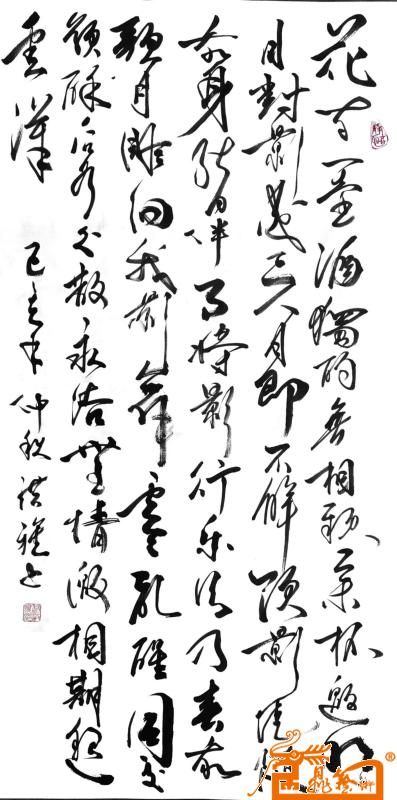 花間一壺酒獨酌無相親舉杯邀明
月對影成三人月即不解飲影徒隨
我身暫伴月將影行樂須及春我
歌月徘徊我影舞零亂醒同交
歡醉後各分散永結無情遊相期邈
雲漢 己亥年仲秋